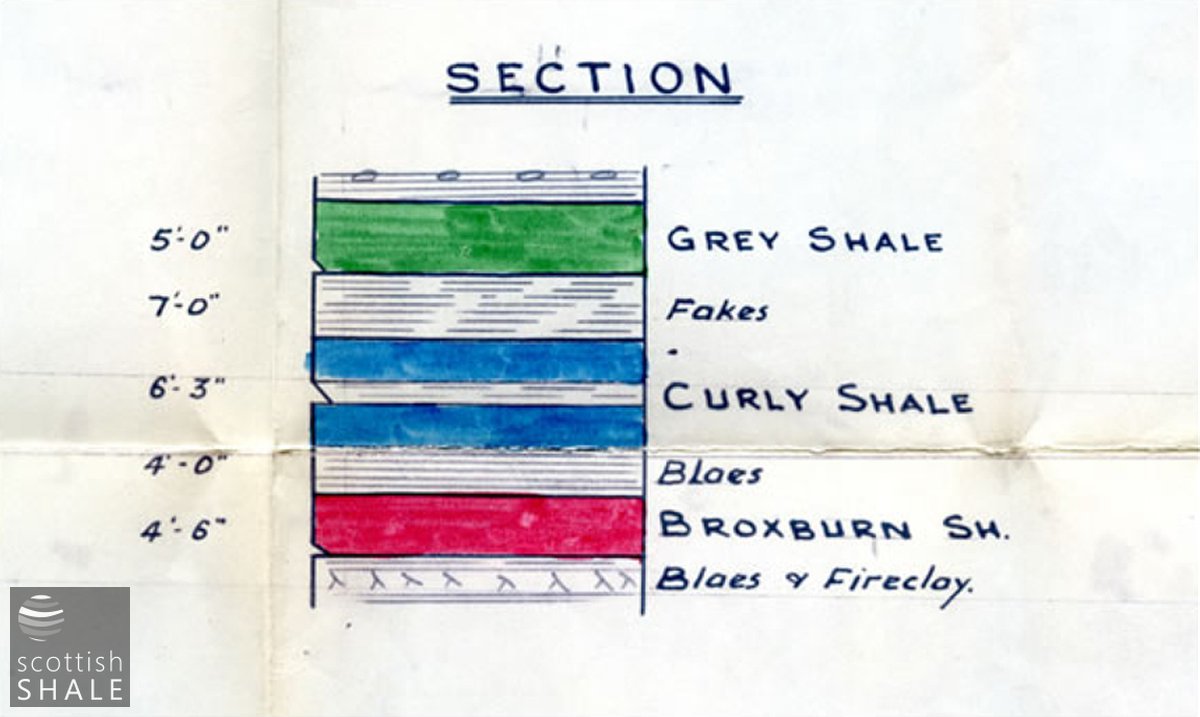 SECTION
5'-0" GREY SHALE
7'-0" Fakes
6'-3" CURLY SHALE
4'-0" Blaes
4'-6" BROXBURN SH.
Blaes & Fireclay.
scottish
SHALE